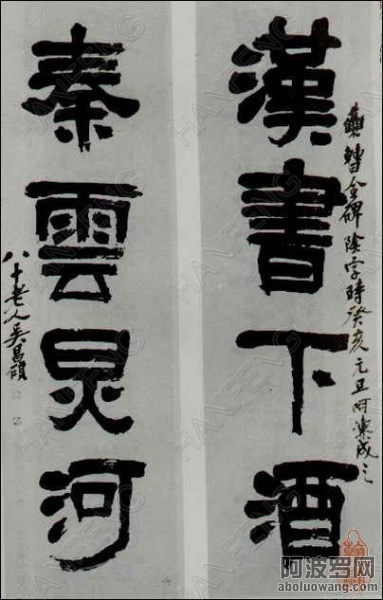 漢書下酒
集曹全碑陰字時癸亥元旦呵凍成之
秦雲炅河
八十老人吳昌碩
HANFENG
阿波罗网
aboluowang.com